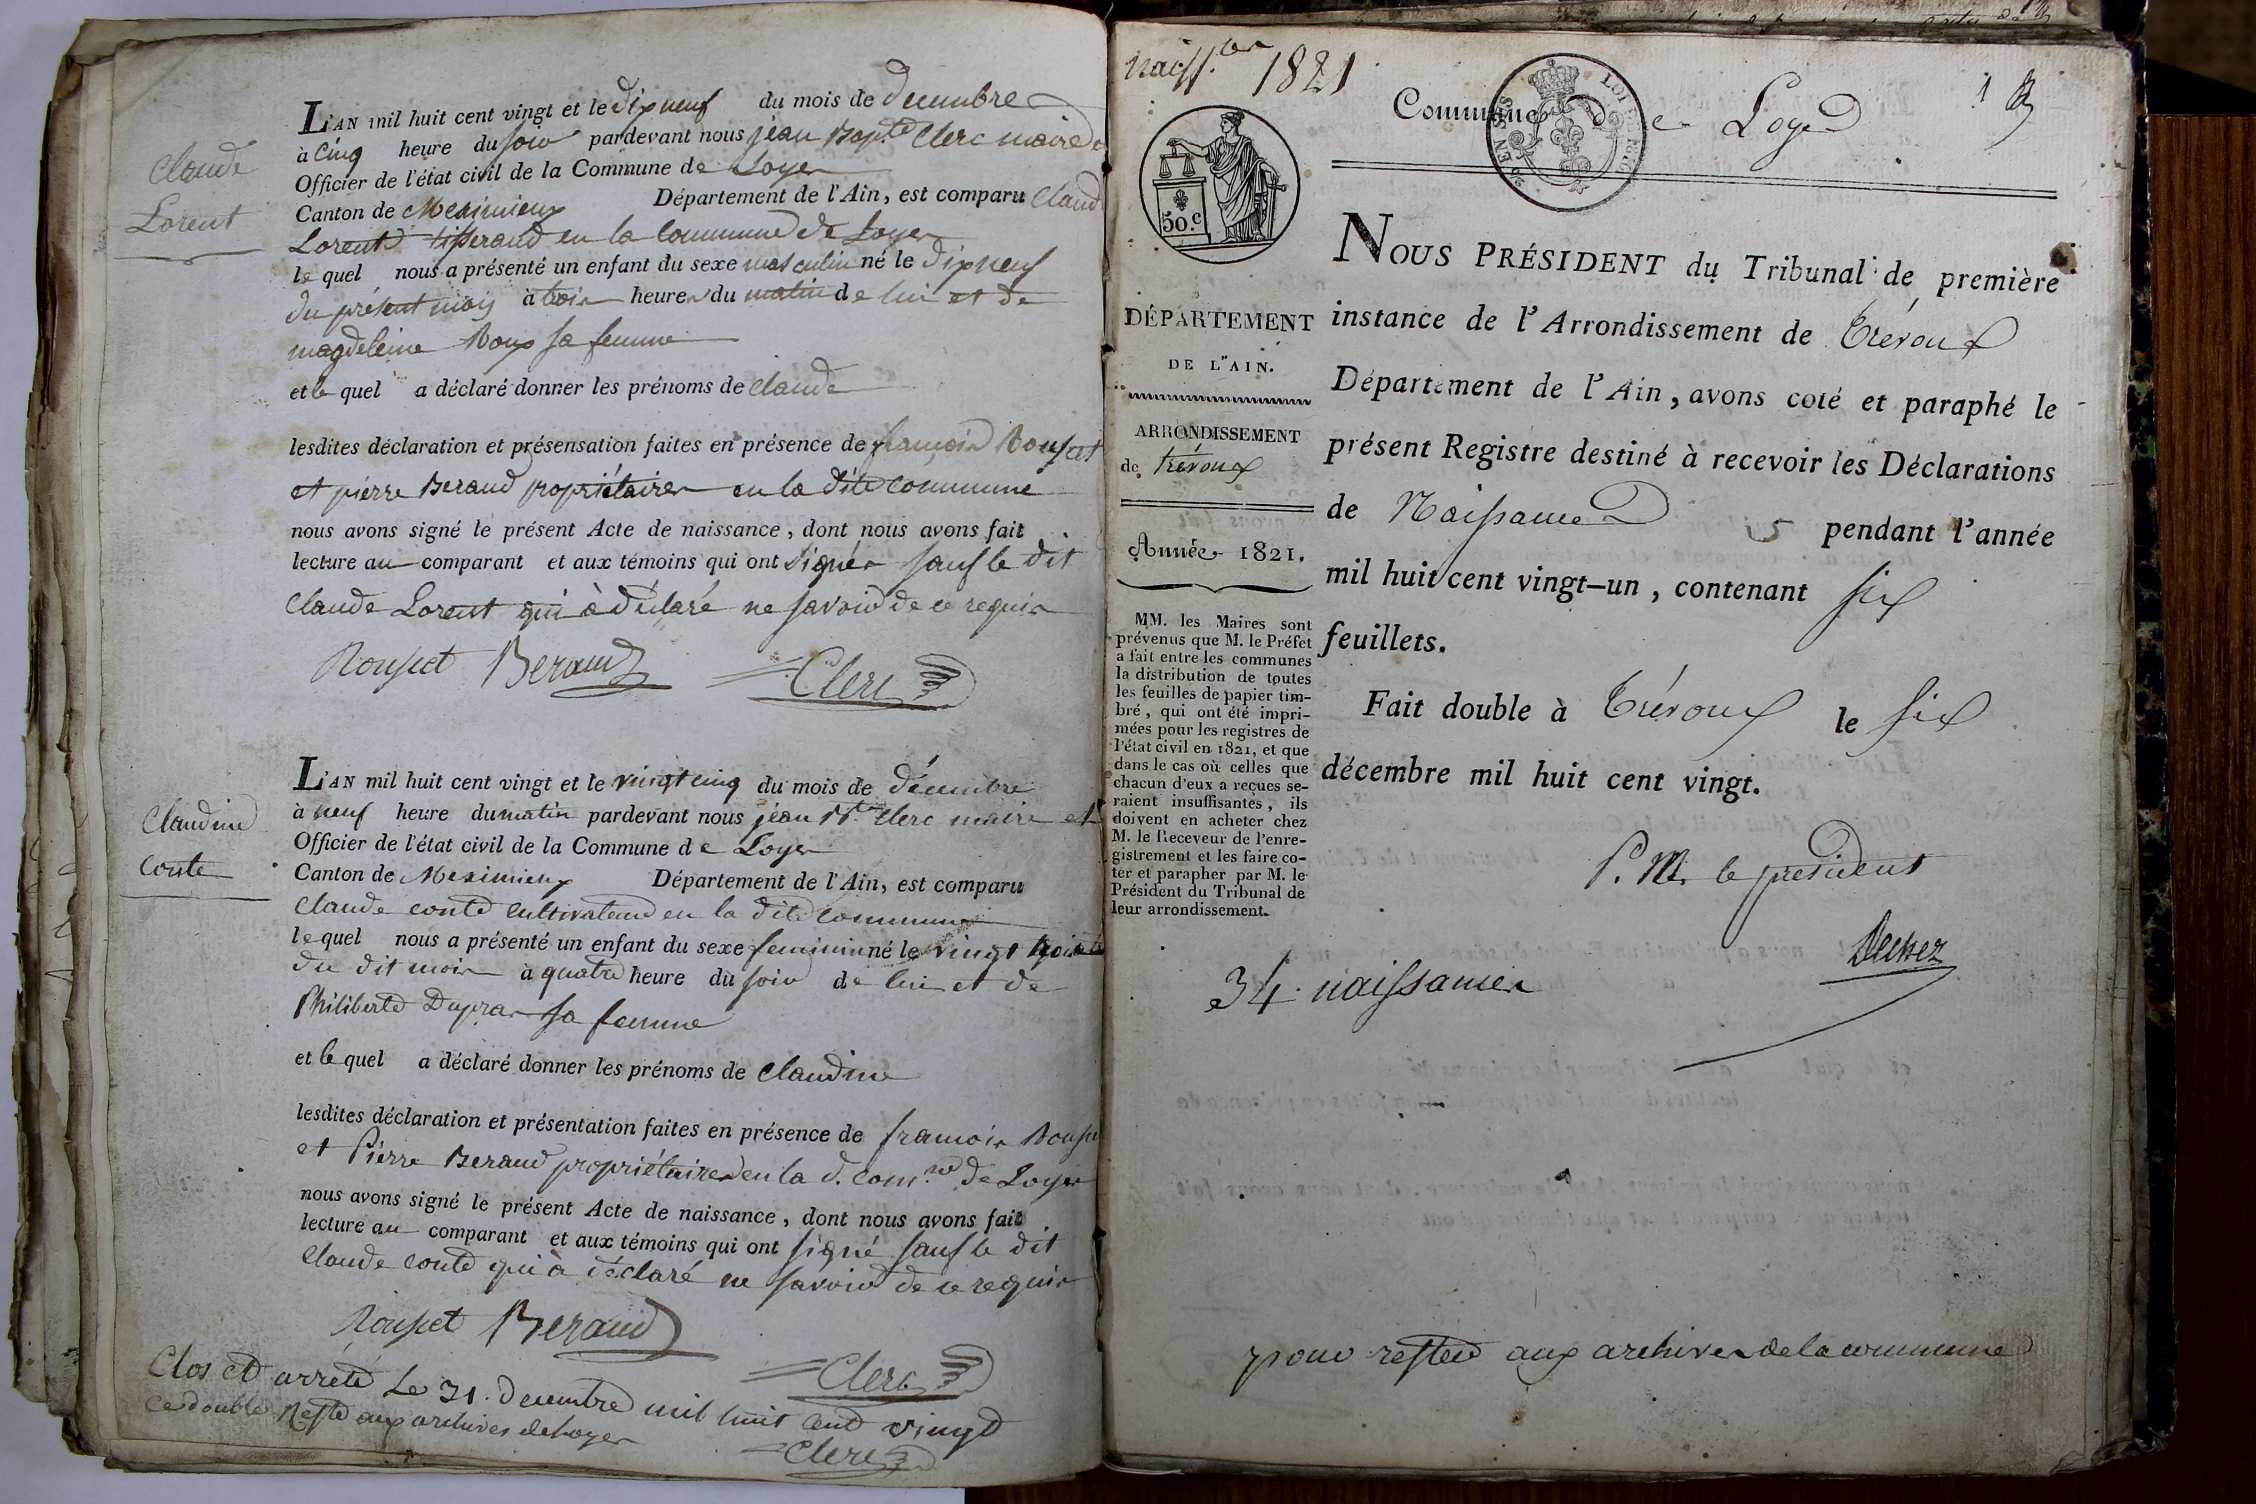 Claude
Lorent
L'AN mil huit cent vingt et le dix neuf du mois de decembre
à cinq heure du soir pardevant nous jean Bapte Clerc maire
Officier de l'état civil de la Commune de Loyes
Canton de Meximieux Département de l'Ain, est comparu Claude
Lorent tisserand en la Commune de Loyes
le quel nous a présenté un enfant du sexe masculin né le dix neuf
du présent mois à trois heures du matin de lui et de
magdeleine Roux sa femme
et le quel a déclaré donner les prénoms de claude
lesdites déclaration et présensation faites en présence de françois Rousset
et pierre Beraud propriétaires en la dite commune
nous avons signé le présent Acte de naissance, dont nous avons fait
lecture au comparant et aux témoins qui ont signés sauf le dit
claude Lorent qui à déclaré ne savoir de ce requis
Rousset Beraud Clerc
Claudine
Conte
L'AN mil huit cent vingt et le vingt cinq du mois de décembre
à neuf heure du matin pardevant nous jean Bte Clerc maire et
Officier de l'état civil de la Commune de Loyes
Canton de Meximieux Département de l'Ain, est comparu
Claude conte cultivateur en la dite commune
le quel nous a présenté un enfant du sexe feminin né le vingt trois
du dit mois à quatre heure du soir de lui et de
Philiberte Dupras sa femme
et le quel a déclaré donner les prénoms de Claudine
lesdites déclaration et présentation faites en présence de francois Rousset
et Pierre Beraud propriétaires en la d. com.ne de Loyes
nous avons signé le présent Acte de naissance, dont nous avons fait
lecture au comparant et aux témoins qui ont signé sauf le dit
Claude conte qui à déclaré ne savoir de ce requis
Rousset Beraud
Clerc
Clos et arrété Le 31. Decembre mil huit cent vingt
Ce double Reste aux archives de Loyes
Clerc
naiss.ces 1821
Commune de Loyes
1
EN SUS LOI DE 1816
50.c
NOUS PRÉSIDENT du Tribunal de première
instance de l'Arrondissement de Trévoux
Département de l'Ain, avons coté et paraphé le
présent Registre destiné à recevoir les Déclarations
de Naissances pendant l'année
mil huit cent vingt-un, contenant six
feuillets.
Fait double à Trévoux le six
décembre mil huit cent vingt.
P. M. le president
DÉPARTEMENT
DE L'AIN.
ARRONDISSEMENT
de trévoux
Année 1821.
MM. les Maires sont
prévenus que M. le Préfet
a fait entre les communes
la distribution de toutes
les feuilles de papier tim-
bré, qui ont été impri-
mées pour les registres de
l'état civil en 1821, et que
dans le cas où celles que
chacun d'eux a reçues se-
raient insuffisantes, ils
doivent en acheter chez
M. le Receveur de l'enre-
gistrement et les faire co-
ter et parapher par M. le
Président du Tribunal de
leur arrondissement.
34. naissances
pour rester aux archives de la commune